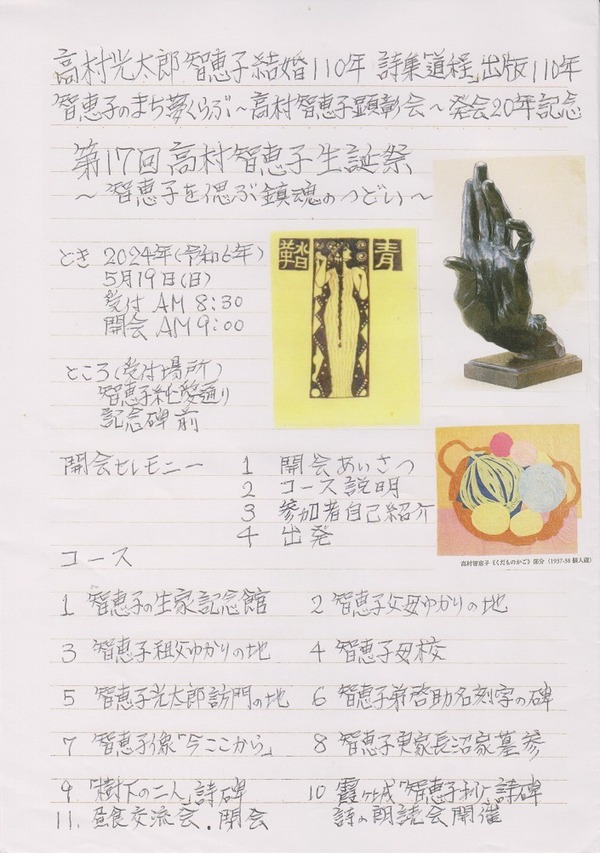 高村光太郎智恵子結婚110年 詩集「道程」出版110年
智恵子のまち夢くらぶ～高村智恵子顕彰会～発会20年記念
第17回高村智恵子生誕祭
～智恵子を偲ぶ鎮魂のつどい～
とき 2024年(令和6年)
5月19日(日)
受付 AM 8:30
開会 AM 9:00
青鞜
ところ(受付場所)
智恵子純愛通り
記念碑前
開会セレモニー
1 開会あいさつ
2 コース説明
3 参加者自己紹介
4 出発
高村智恵子《くだものかご》部分(1937-38 個人蔵)
コース
1 智恵子の生家記念館
2 智恵子父母ゆかりの地
3 智恵子祖父ゆかりの地
4 智恵子母校
5 智恵子光太郎訪問の地
6 智恵子弟啓助名刻字の碑
7 智恵子像「今ここから」
8 智恵子実家長沼家墓参
9 「樹下の二人」詩碑
10 霞ヶ城「智恵子抄」詩碑
詩の朗読会開催
11. 昼食交流会.閉会